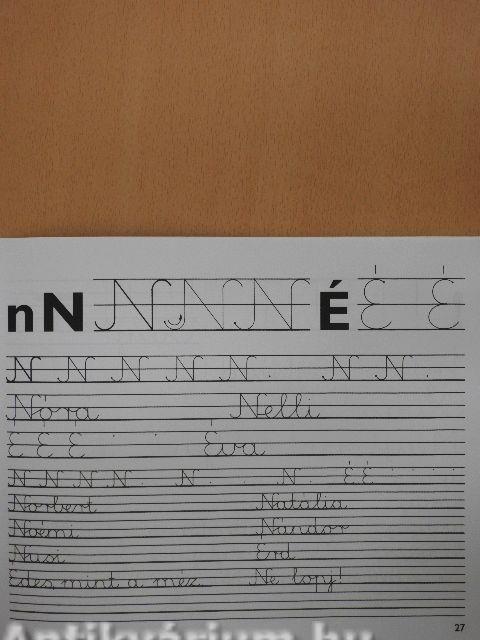 nN N N N É É É
N N N N N N N
Nóra Nelli
É É É Éva
N N N N N N É É
Norbert Natália
Noémi Nándor
Nusi Érd
Édes, mint a méz. Ne lopj!
27
Antikvárium.hu